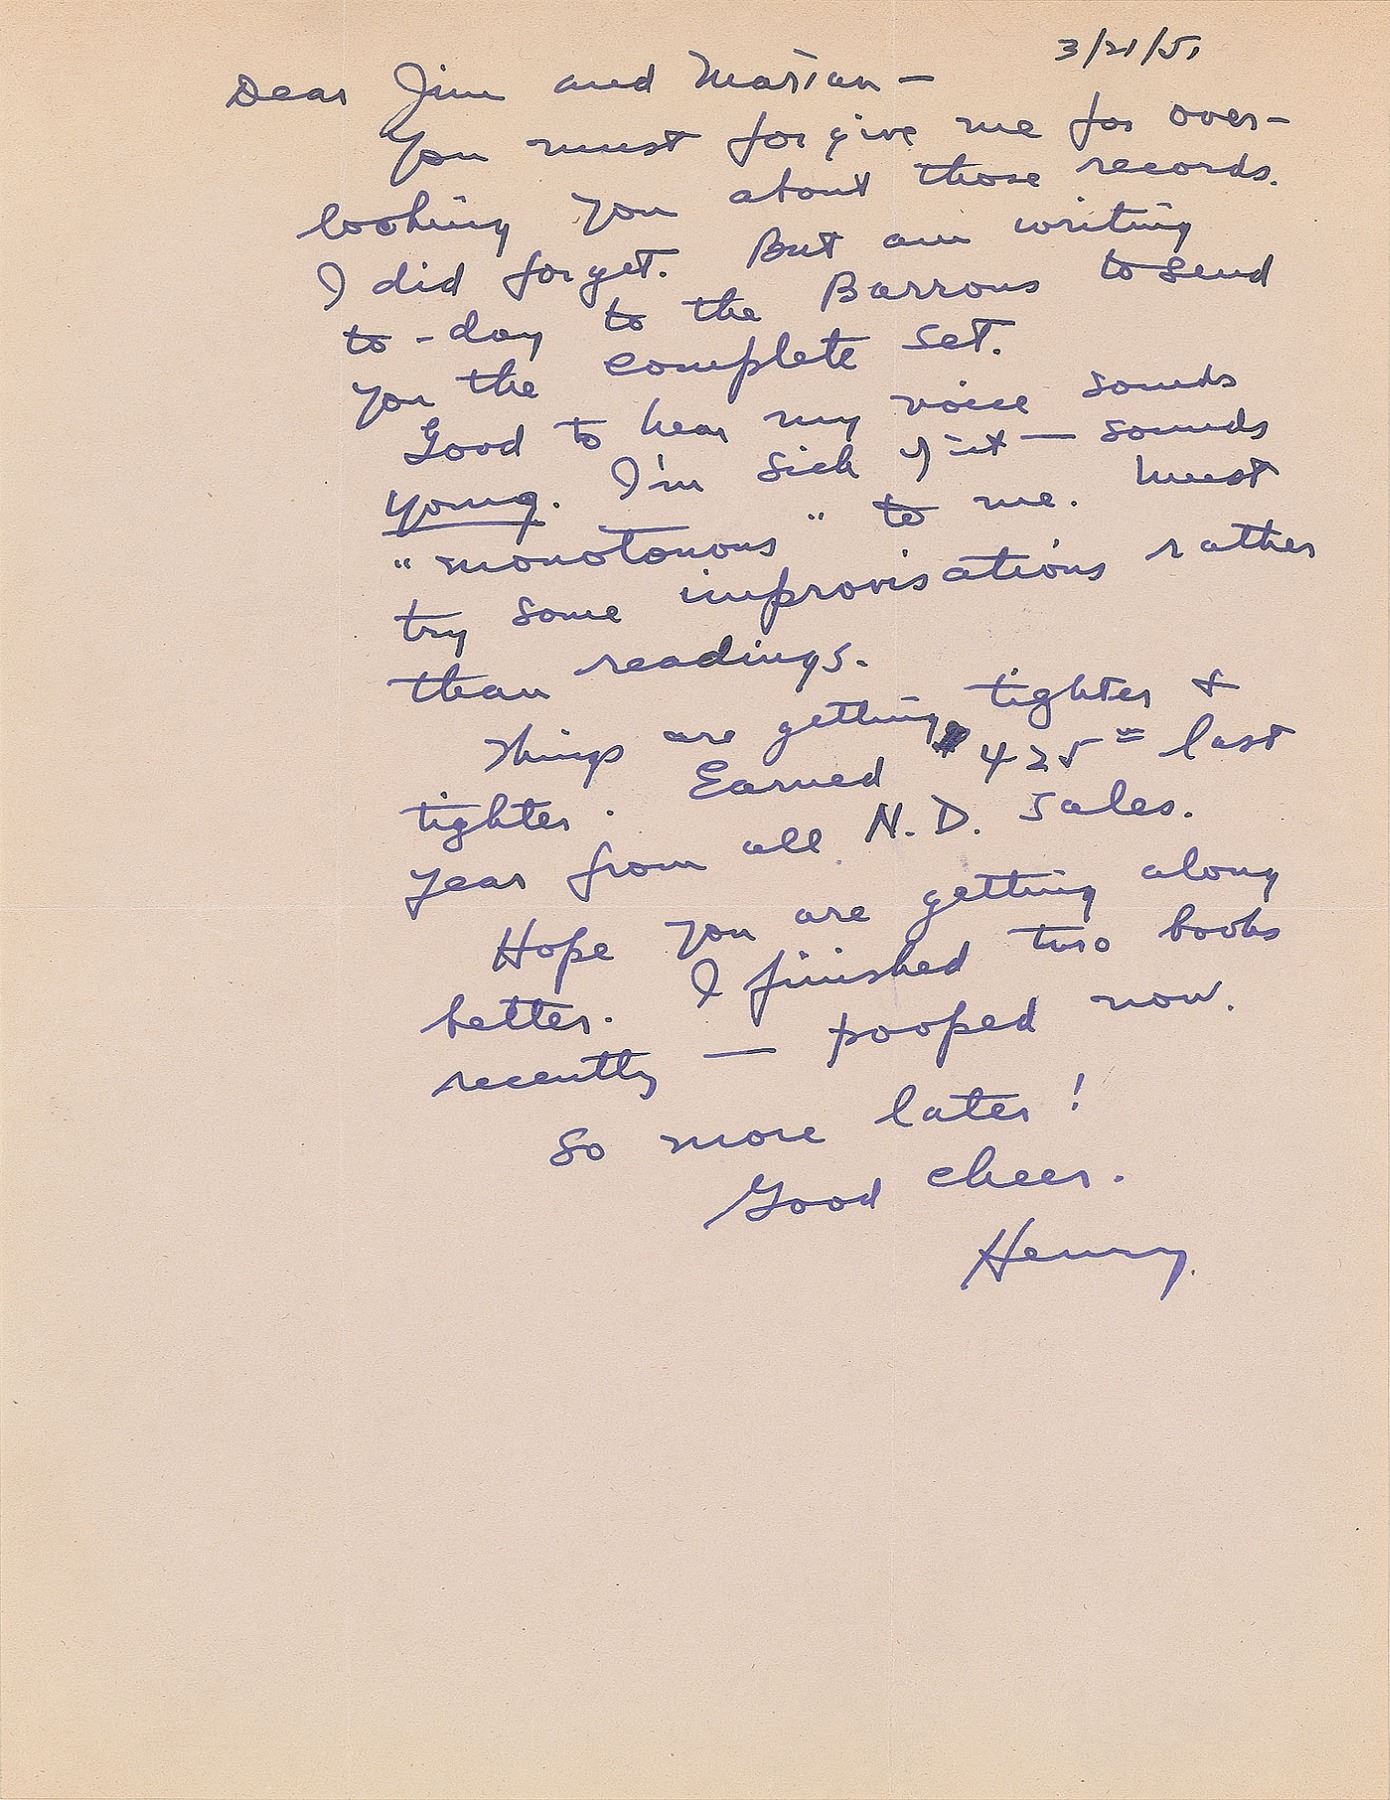 3/21/51
Dear Jim and Marian —
You must forgive me for over-
looking you about those records.
I did forget. But am writing
to-day to the Barrons to send
you the complete set.
Good to hear my voice sounds
young. I'm sick of it — sounds
"monotonous" to me. Must
try some improvisations rather
than readings.
Things are getting tighter &
tighter. Earned $425= last
year from all N.D. sales.
Hope you are getting along
better. I finished two books
recently — pooped now.
So more later!
Good cheer.
Henry